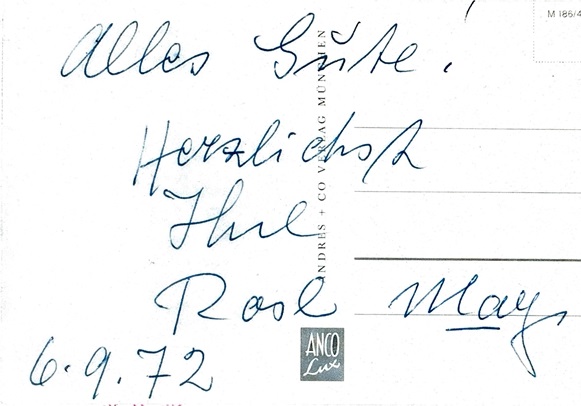 Alles Gute!
Herzlichst
Ihre
Rosl Mayr
6.9.72
M 186/4
ANDRES + CO VERLAG MÜNCHEN
ANCO
Lux